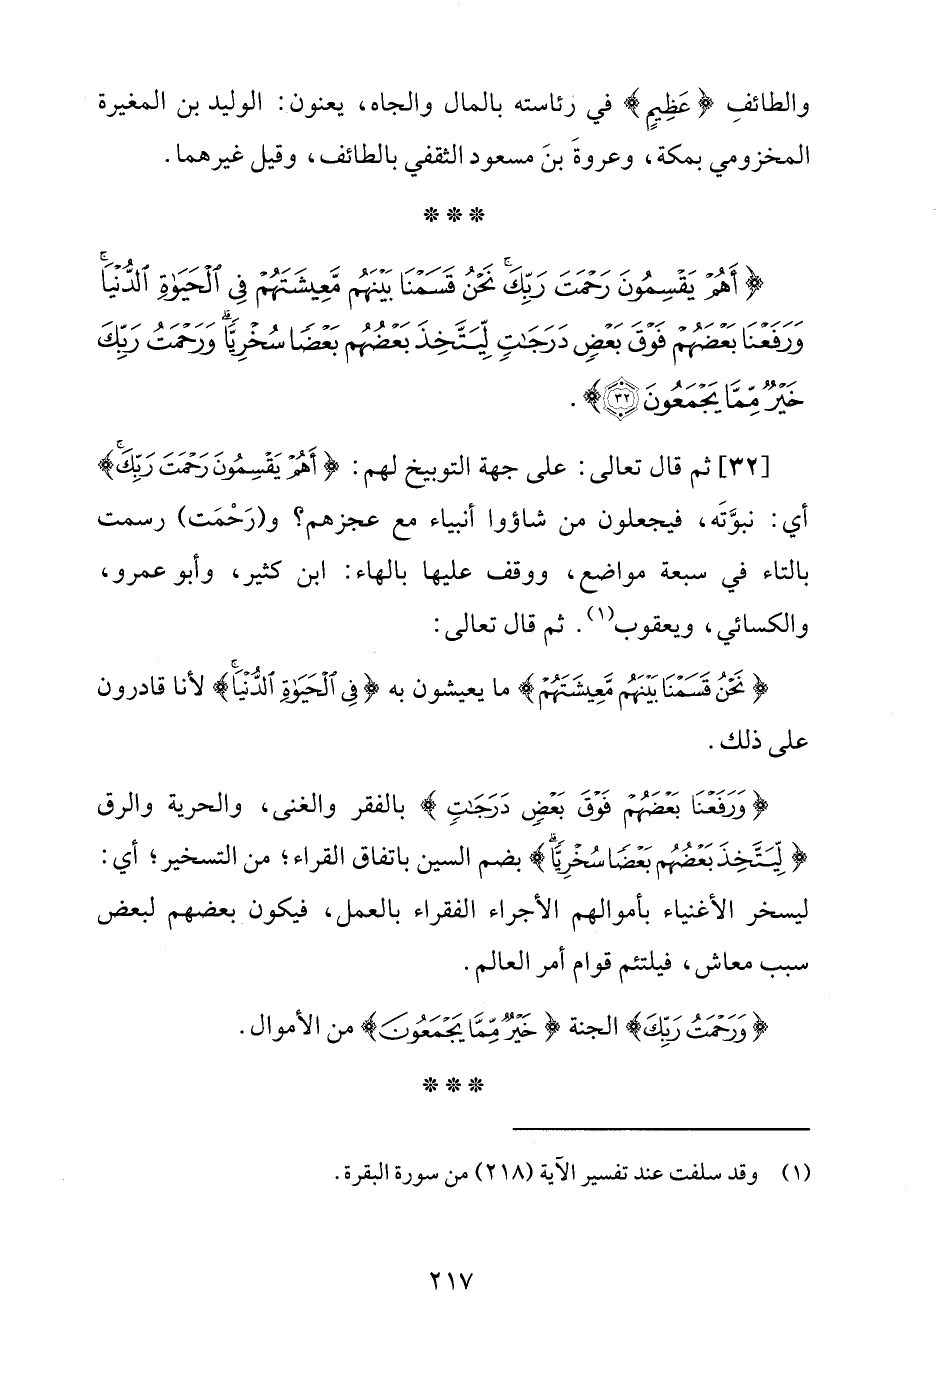 والطائفِ ﴿عَظِيمٍ﴾ في رئاسته بالمال والجاه، يعنون: الوليد بن المغيرة
المخزومي بمكة، وعروةَ بنَ مسعود الثقفي بالطائف، وقيل غيرهما.
* * *
﴿أَهُمْ يَقْسِمُونَ رَحْمَتَ رَبِّكَۚ نَحْنُ قَسَمْنَا بَيْنَهُم مَّعِيشَتَهُمْ فِى ٱلْحَيَوٰةِ ٱلدُّنْيَاۚ
وَرَفَعْنَا بَعْضَهُمْ فَوْقَ بَعْضٍ دَرَجَٰتٍ لِّيَتَّخِذَ بَعْضُهُم بَعْضًا سُخْرِيًّاۗ وَرَحْمَتُ رَبِّكَ
خَيْرٌ مِّمَّا يَجْمَعُونَ ٣٢﴾.
[٣٢] ثم قال تعالى: على جهة التوبيخ لهم: ﴿أَهُمْ يَقْسِمُونَ رَحْمَتَ رَبِّكَۚ﴾
أي: نبوَّتَه، فيجعلون من شاؤوا أنبياء مع عجزهم؟ و(رَحْمَت) رسمت
بالتاء في سبعة مواضع، ووقف عليها بالهاء: ابن كثير، وأبو عمرو،
والكسائي، ويعقوب(١). ثم قال تعالى:
﴿نَحْنُ قَسَمْنَا بَيْنَهُم مَّعِيشَتَهُمْ﴾ ما يعيشون به ﴿فِى ٱلْحَيَوٰةِ ٱلدُّنْيَاۚ﴾ لأنا قادرون
على ذلك.
﴿وَرَفَعْنَا بَعْضَهُمْ فَوْقَ بَعْضٍ دَرَجَٰتٍ﴾ بالفقر والغنى، والحرية والرق
﴿لِّيَتَّخِذَ بَعْضُهُم بَعْضًا سُخْرِيًّاۗ﴾ بضم السين باتفاق القراء؛ من التسخير؛ أي:
ليسخر الأغنياء بأموالهم الأجراء الفقراء بالعمل، فيكون بعضهم لبعض
سبب معاش، فيلتئم قوام أمر العالم.
﴿وَرَحْمَتُ رَبِّكَ﴾ الجنة ﴿خَيْرٌ مِّمَّا يَجْمَعُونَ﴾ من الأموال.
* * *
(١) وقد سلفت عند تفسير الآية (٢١٨) من سورة البقرة.
٢١٧